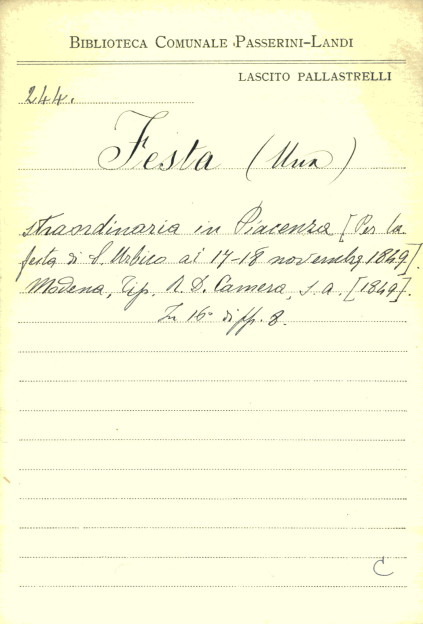 BIBLIOTECA COMUNALE PASSERINI-LANDI
LASCITO PALLASTRELLI
244.
Festa (Una)
straordinaria in Piacenza [Per la
festa di S. Urbico ai 17-18 novembre 1849].
Modena, Tip. R. D. Camera, s. a. [1849].
In 16° di pp. 8.
C